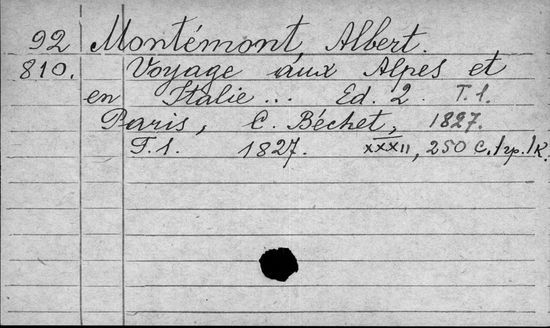 92 Montémont, Albert.
810. Voyage aux Alpes et
en Italie ... Ed. 2. T.1.
Paris, C. Béchet, 1827.
T.1. 1827. XXXII, 250 c., 1 гр., 1 к.